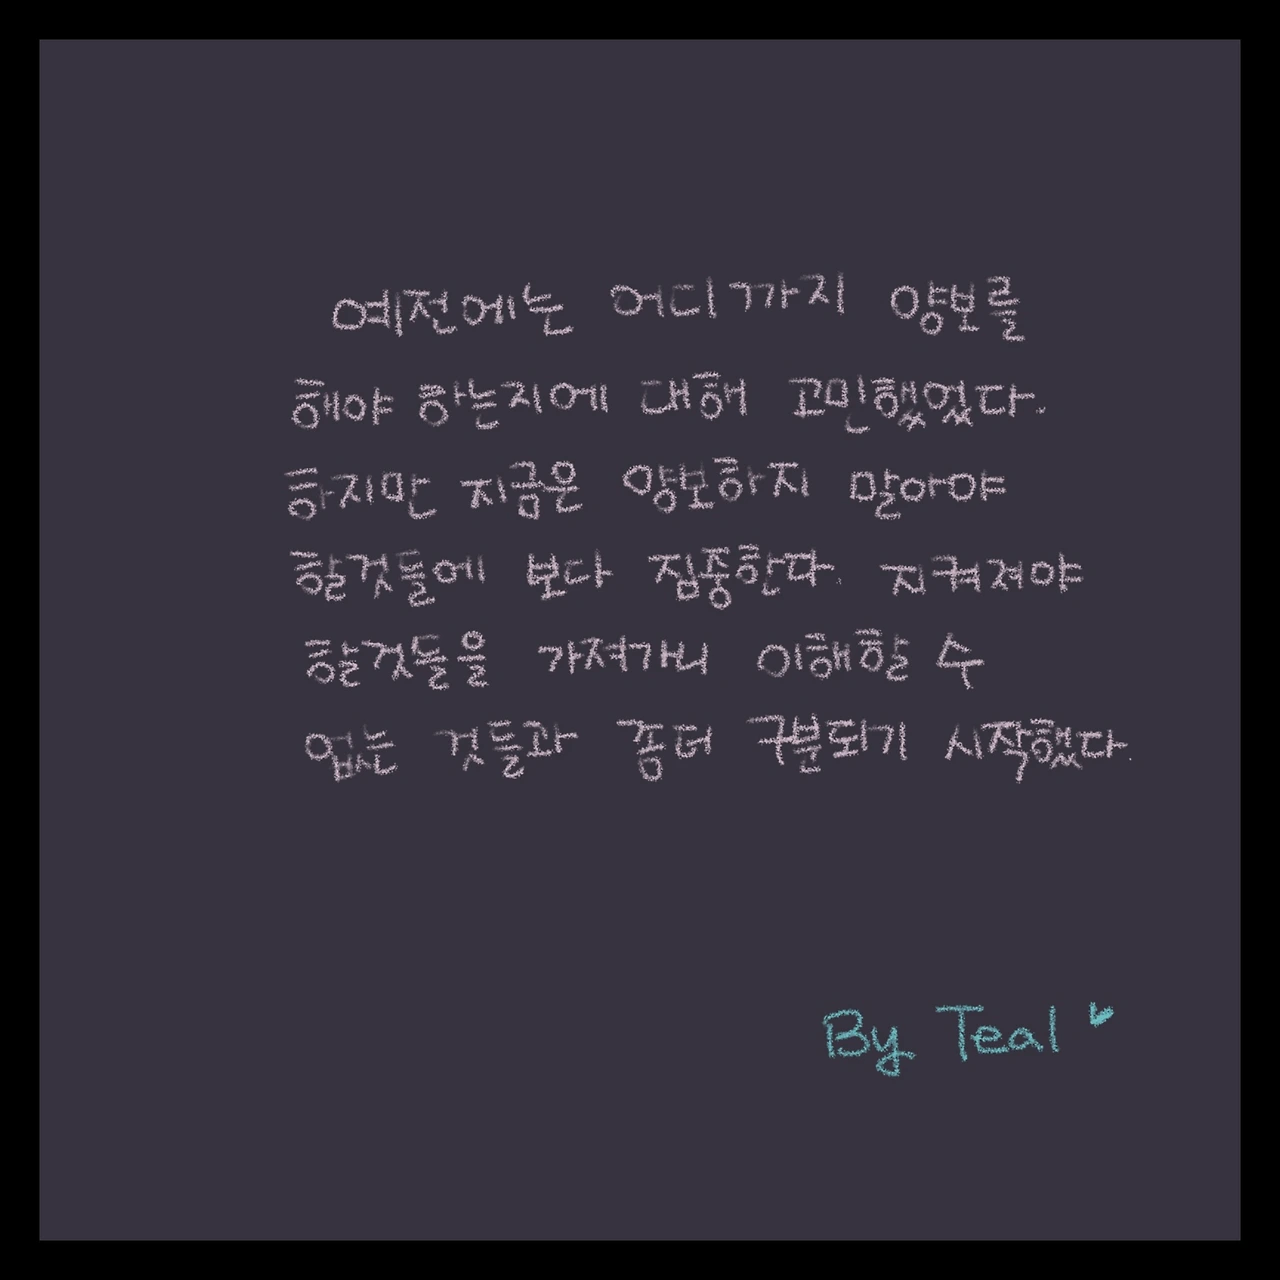 예전에는 어디까지 양보를
해야 하는지에 대해 고민했었다.
하지만 지금은 양보하지 말아야
할것들에 보다 집중한다. 지켜져야
할것들을 가져가니 이해할 수
없는 것들과 좀더 구분되기 시작했다.
By Teal